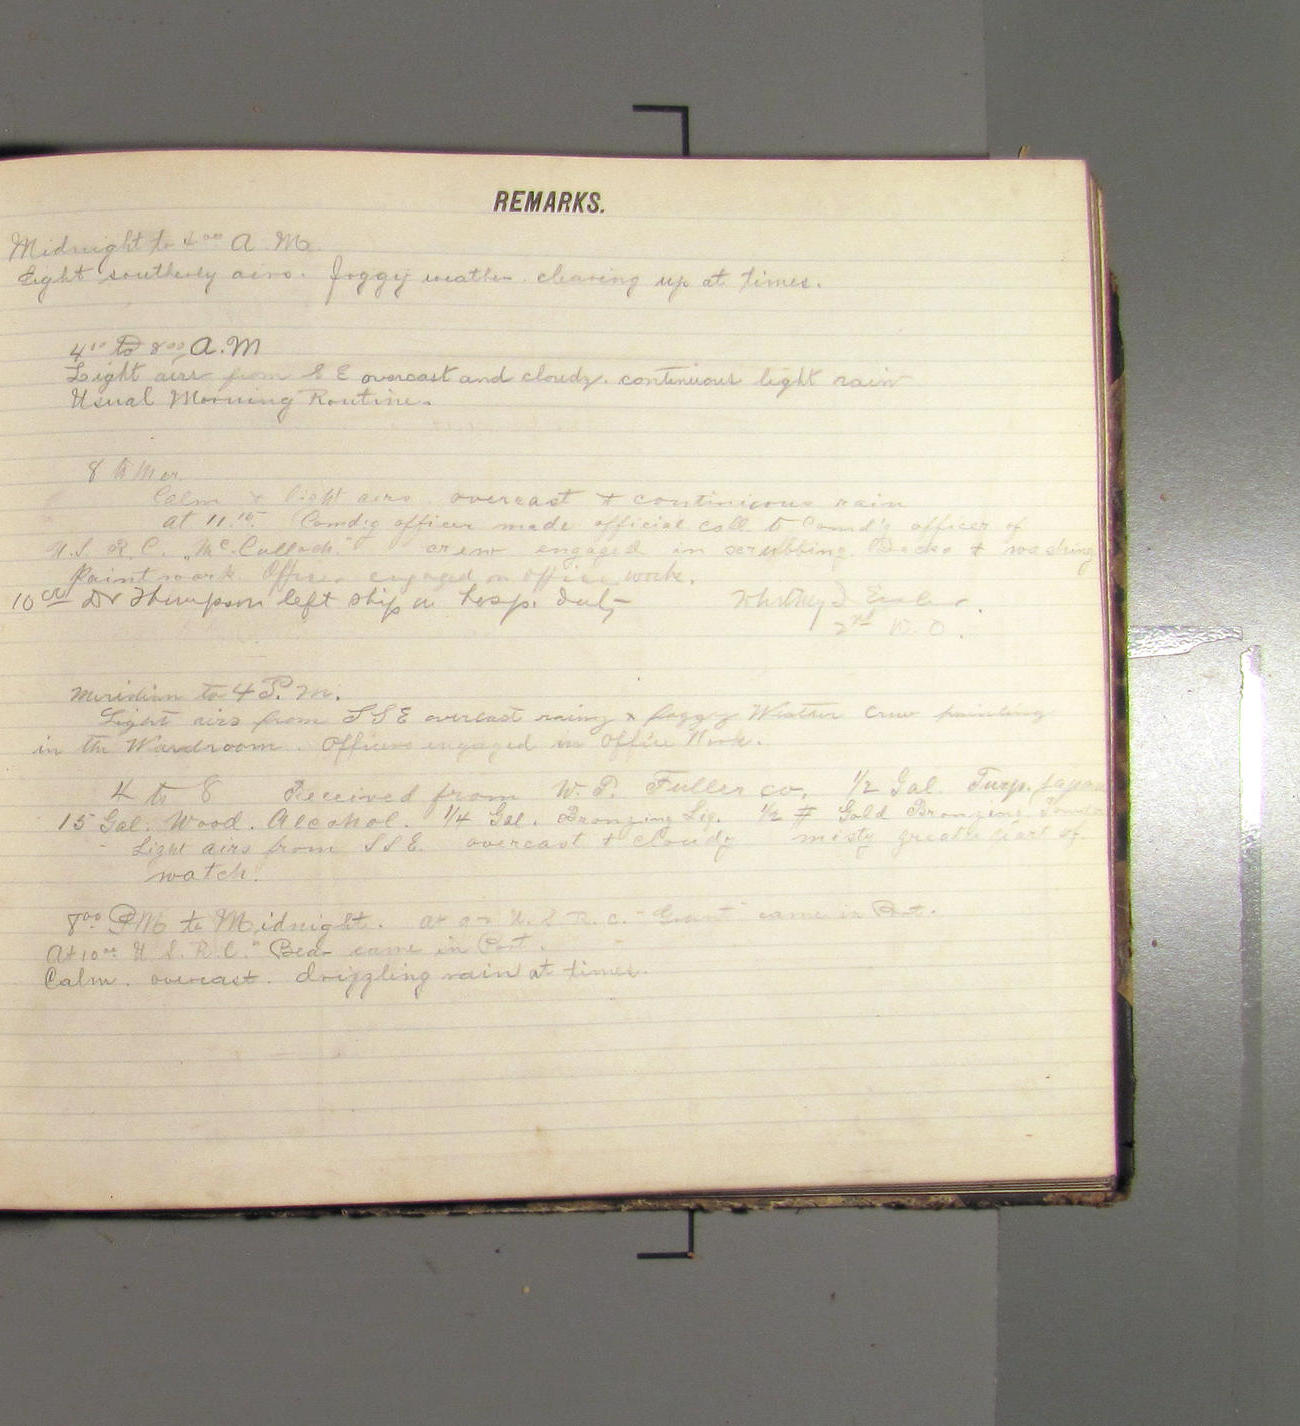 REMARKS.
Midnight to 4 00 A. M.
Light southerly airs. foggy weather. clearing up at times.
4 00 to 8 00 A.M
Light airs from S E overcast and cloudy. continuous light rain
Usual Morning Routine.
8 to Mer
Calm & light airs overcast & continious rain
at 11.15 Comd'g officer made official call to Comd'g officer of
U.S. R. C. "McCulloch." crew engaged in scrubbing Decks & washing
Paint work. Officers engaged on office work.
10 Dr Thompson left ship on hosp. duty
2nd
Meridian to 4 P. M.
Light airs from S S E overcast rainy & foggy Weather Crew painting
in the Wardroom. Officers engaged in Office Work.
4 to 8 Received from W. P. Fuller co. 1/2 Gal. Turp. Japan
15 Gal. Wood. Alcohol. 1/4 Gal. Bronzing Liq. 1/2 # Gold Bronzing
Light airs from S S E. overcast & cloudy misty greater part of
watch.
8 00 P M to Midnight. at U. S. R. C. "Grant" came in Port.
At 10 U. S. R. C. "Bear came in Port.
Calm. overcast. drizzling rain at times.